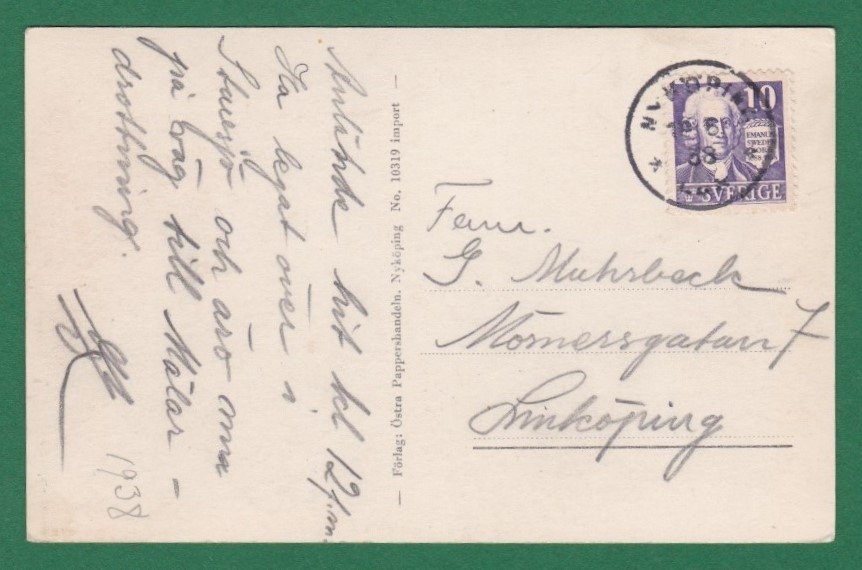 Anlände hit kl 12 f.m.
Ha legat över i
Stavsjö och äro nu
på väg till Mälar-
drottning.
1938
Förlag: Östra Pappershandeln. Nyköping No. 10319 import
NYKÖPING
38
10
EMANUEL
SWEDEN
BORG
SVERIGE
Fam.
G. Muhrbeck
Mörnersgatan 7
Linköping